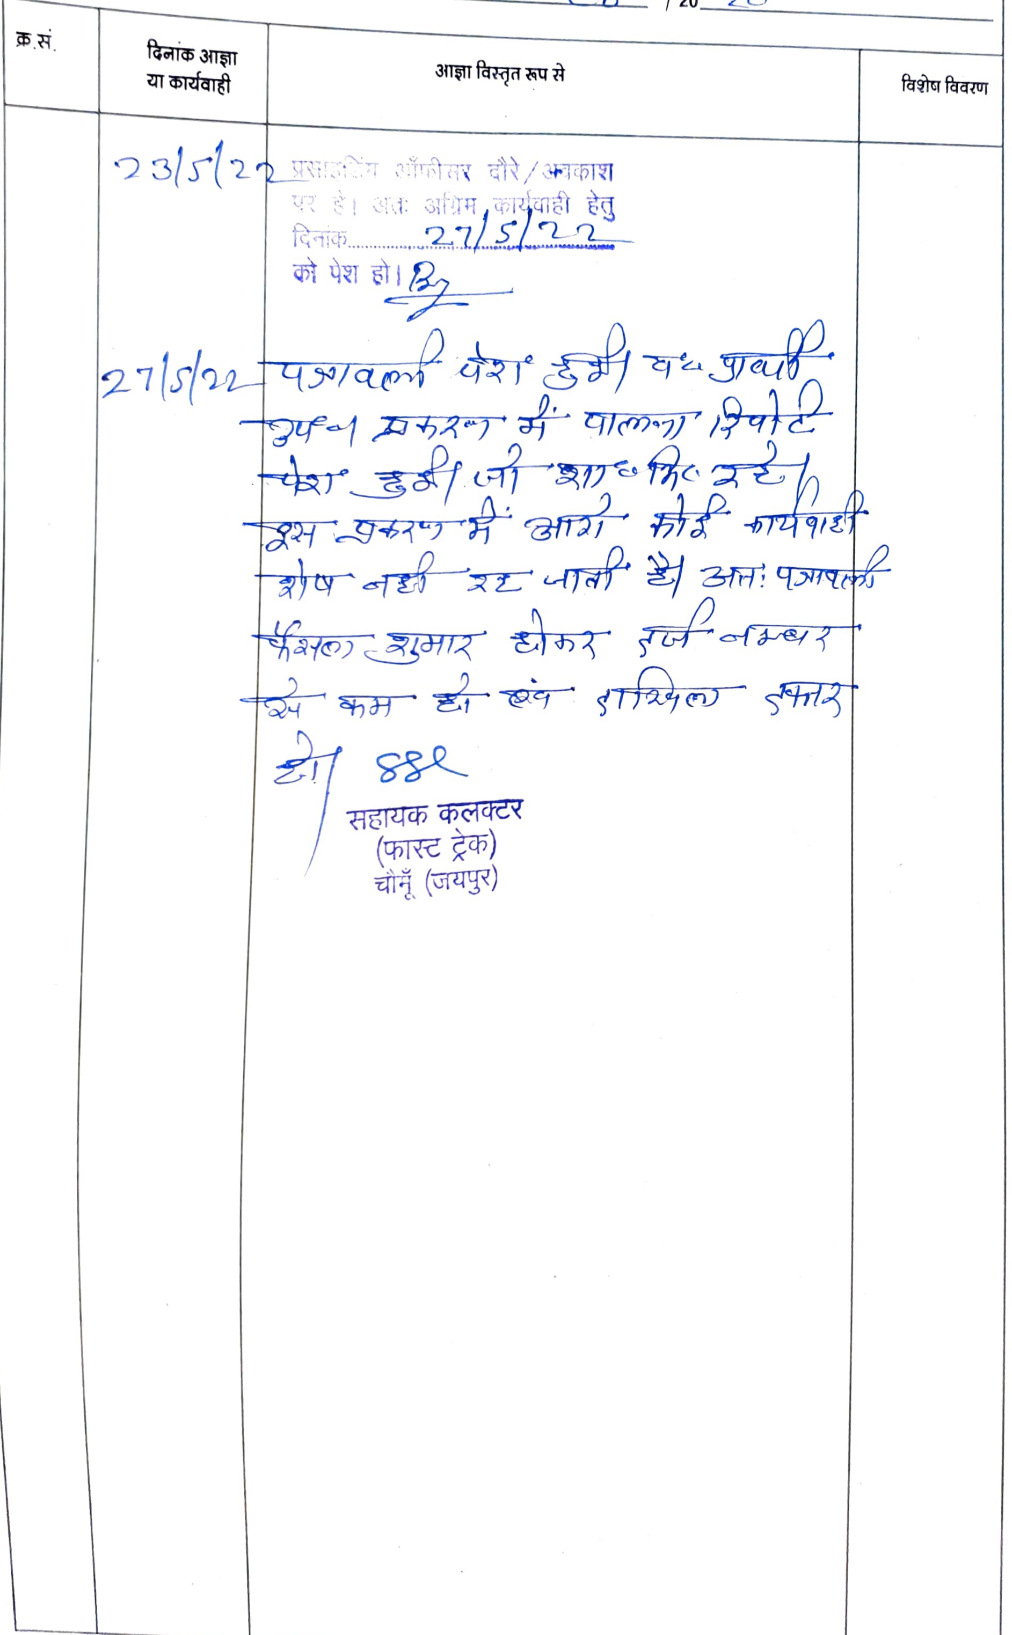 / 20
क्र.सं.
दिनांक आज्ञा
या कार्यवाही
आज्ञा विस्तृत रूप से
विशेष विवरण
23/5/22
प्रसाइडिंग ऑफीसर दौरे/अवकाश
पर है। अतः अग्रिम कार्यवाही हेतु
दिनांक 27/5/22
को पेश हो।
27/5/22 पत्रावली पेश हुई। प्रार्थी
प्रकरण में पालना रिपोर्ट
पेश हुई। जो शामिल रहे।
इस प्रकरण में आगे कोई कार्यवाही
शेष नही रह जाती है। अतः पत्रावली
फैसल शुमार होकर दर्ज नम्बर
से कम हो एवं दाखिल दफ्तर
हो।
सहायक कलक्टर
(फास्ट ट्रेक)
चौमूँ (जयपुर)